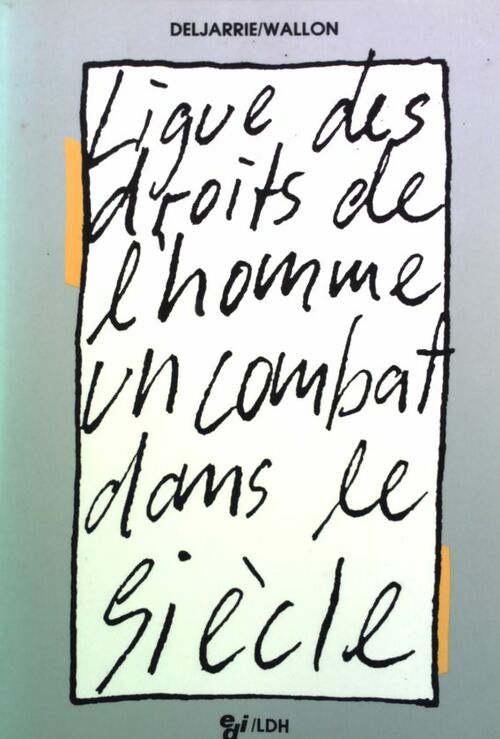 DELJARRIE/WALLON
Ligue des
droits de
l'homme
un combat
dans le
siècle
edi/LDH